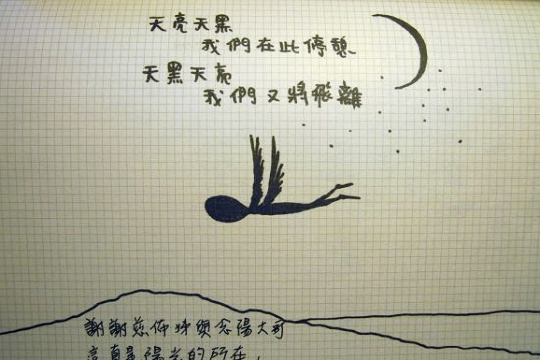 天亮天黑
我們在此停憩
天黑天亮
我們又將飛離
謝謝慈 念陽大哥
這真是陽光的所在,